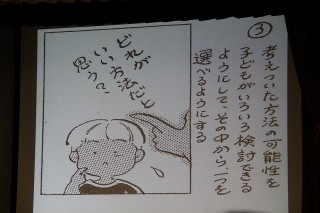 ③
考えついた方法の可能性を
子どもがいろいろ検討できる
ようにして、その中から、一つを
選べるようにする
どれが
いい方法だと
思う?